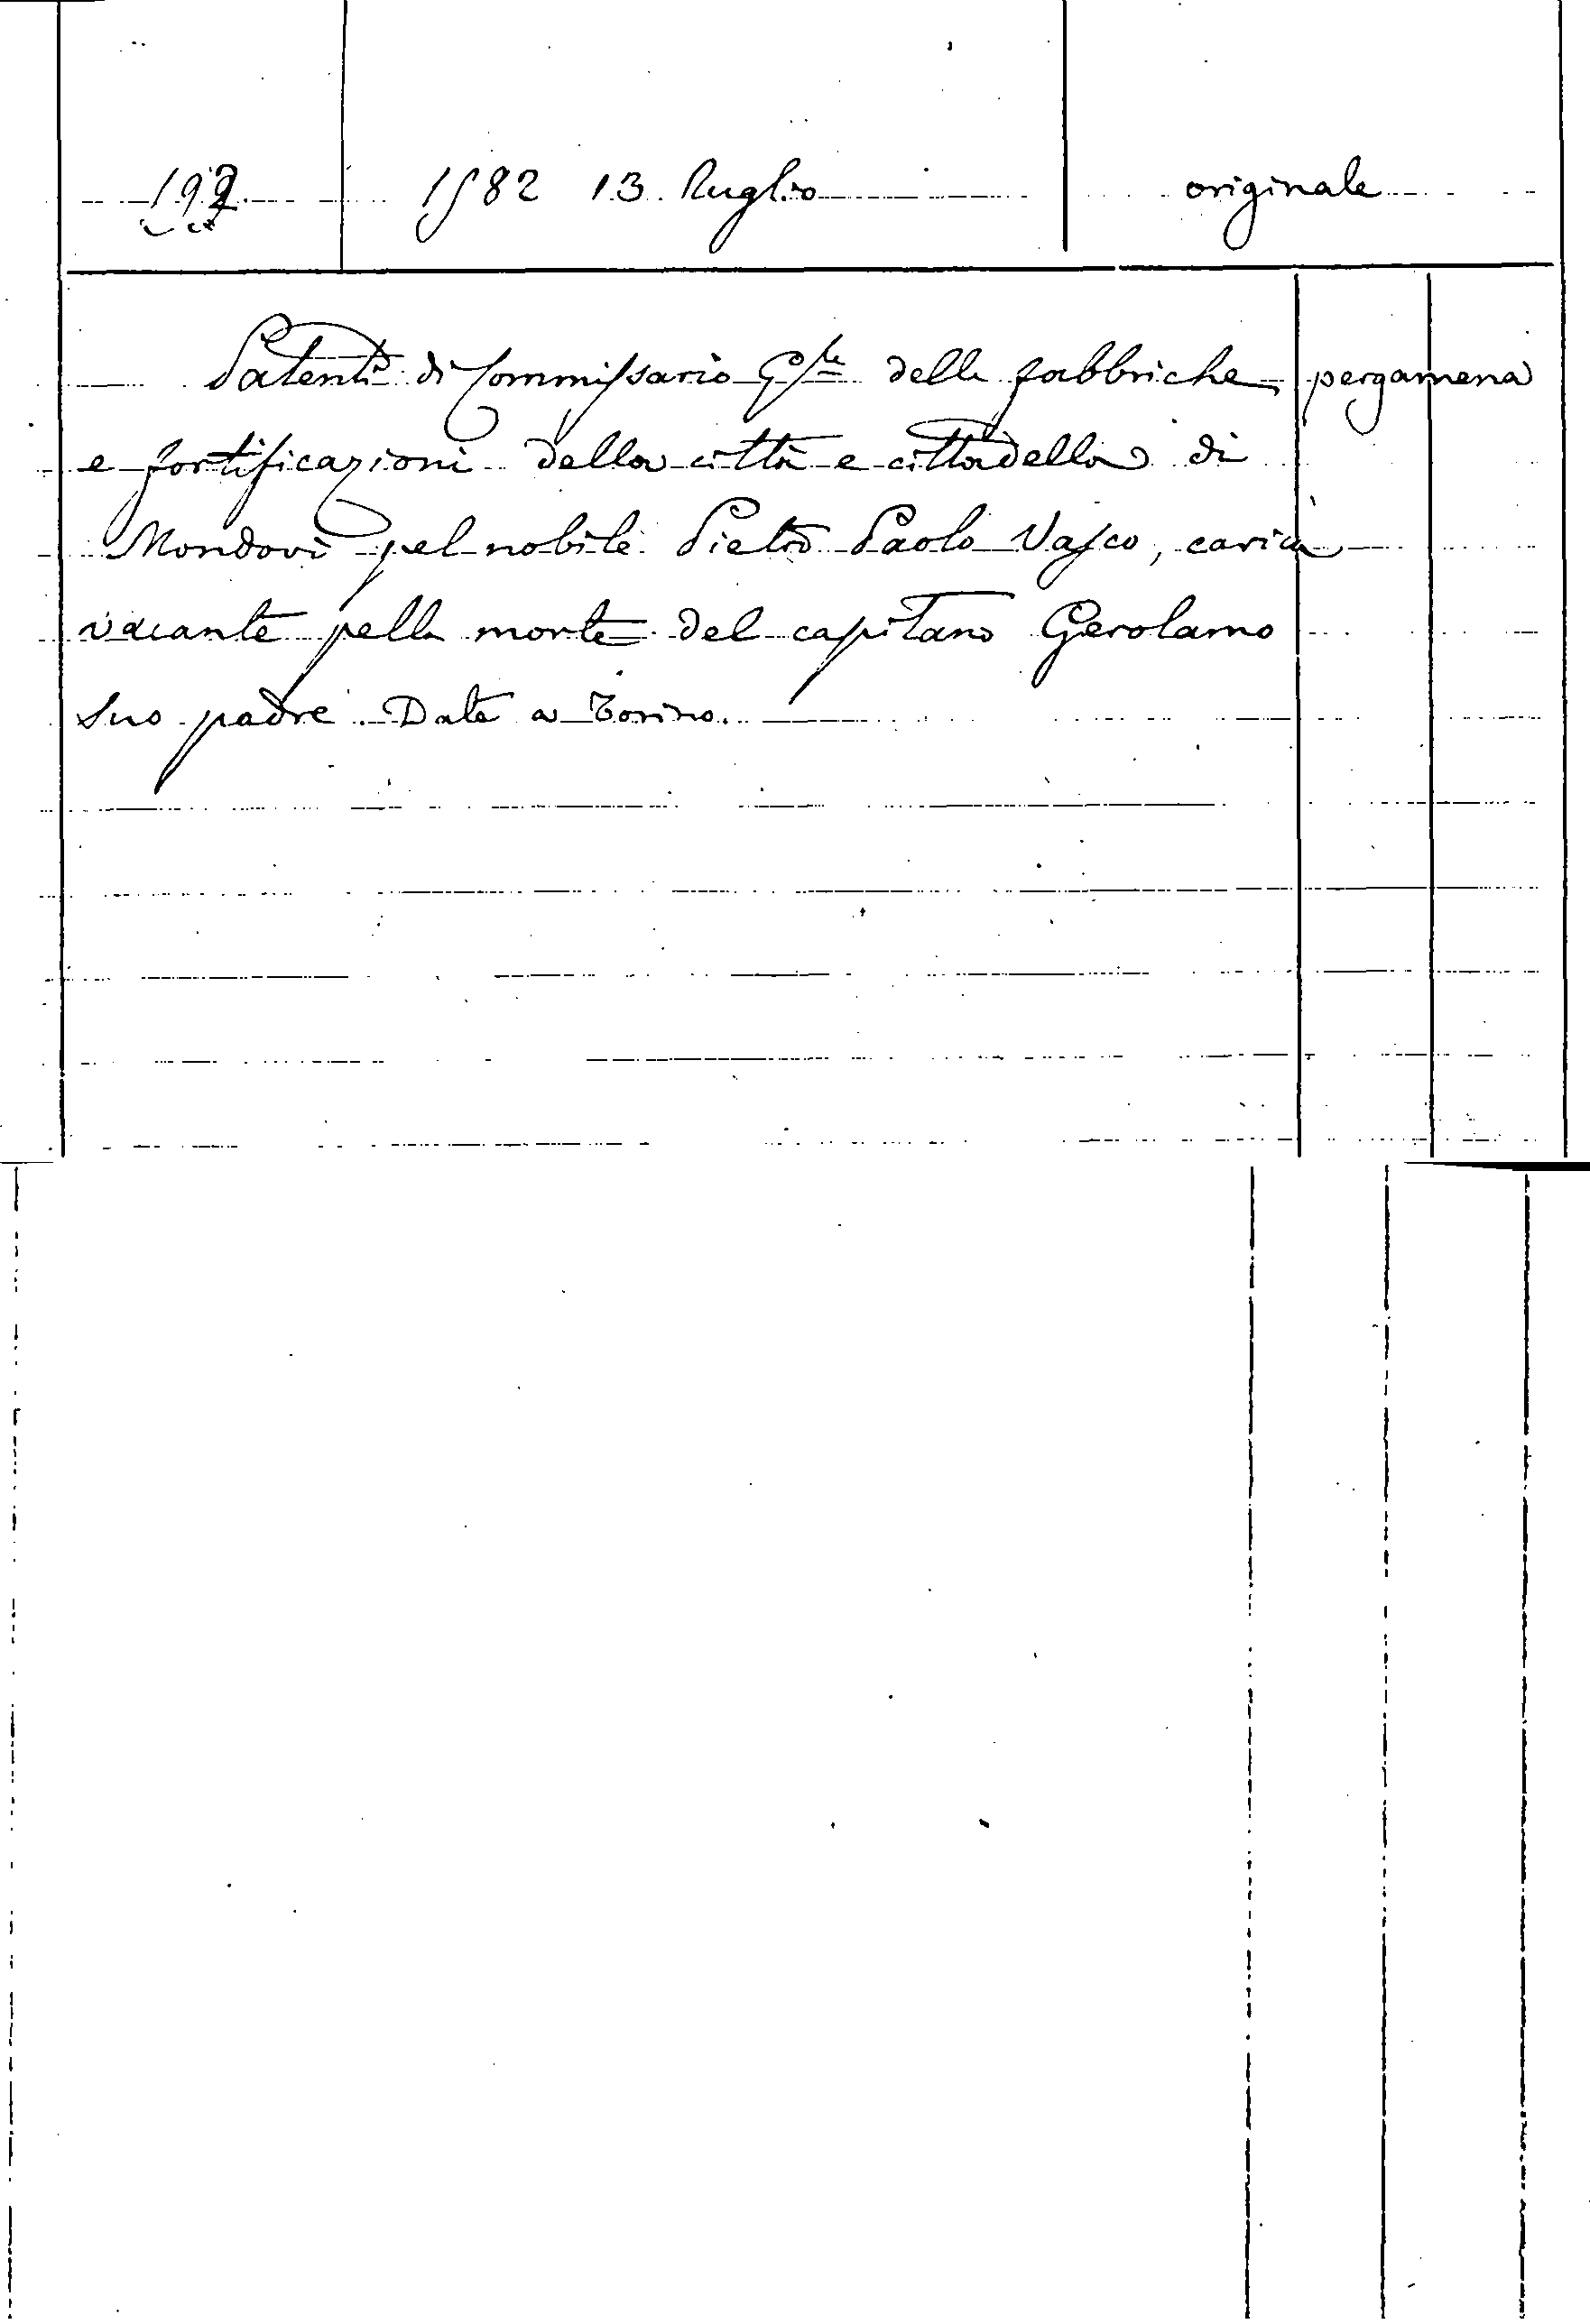 192 1582 13 Luglio originale
Patenti di Commissario G.le delle fabbriche pergamena
e fortificazioni della città e cittadella di
Mondovì pel nobile Pietro Paolo Vasco, carica
vacante pella morte del capitano Gerolamo
suo padre. Date a Torino.